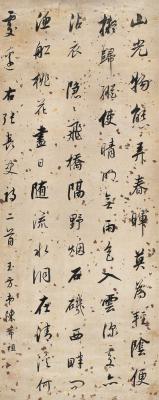 山光物態弄春暉莫為輕陰便
擬歸縱使晴明無雨色入雲深處亦
沾衣隱隱飛橋隔野烟石磯西畔問
漁船桃花盡日隨流水洞在清溪何
處邊右張長史詩二首 玉方陳希祖